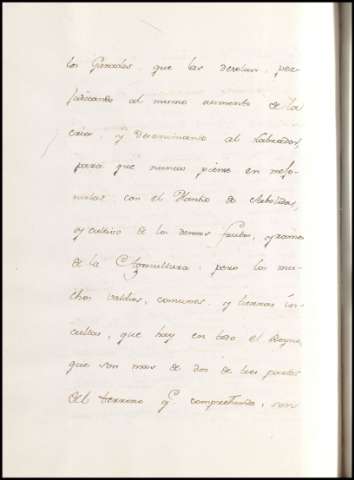 los Ganados, que las desean, per-
judicando al mismo aumento de la
cria, y desanimando al Labrador,
para que nunca piense en mejo-
rarlas con el Plantio de Arboledas,
y cultivo de los demas frutos, y ramos
de la Agricultura, pero los mu-
chos valdios, comunes y tierras in-
cultas, que hay en todo el Reyno,
que son mas de dos de tres partes
del terreno q. comprehende, son